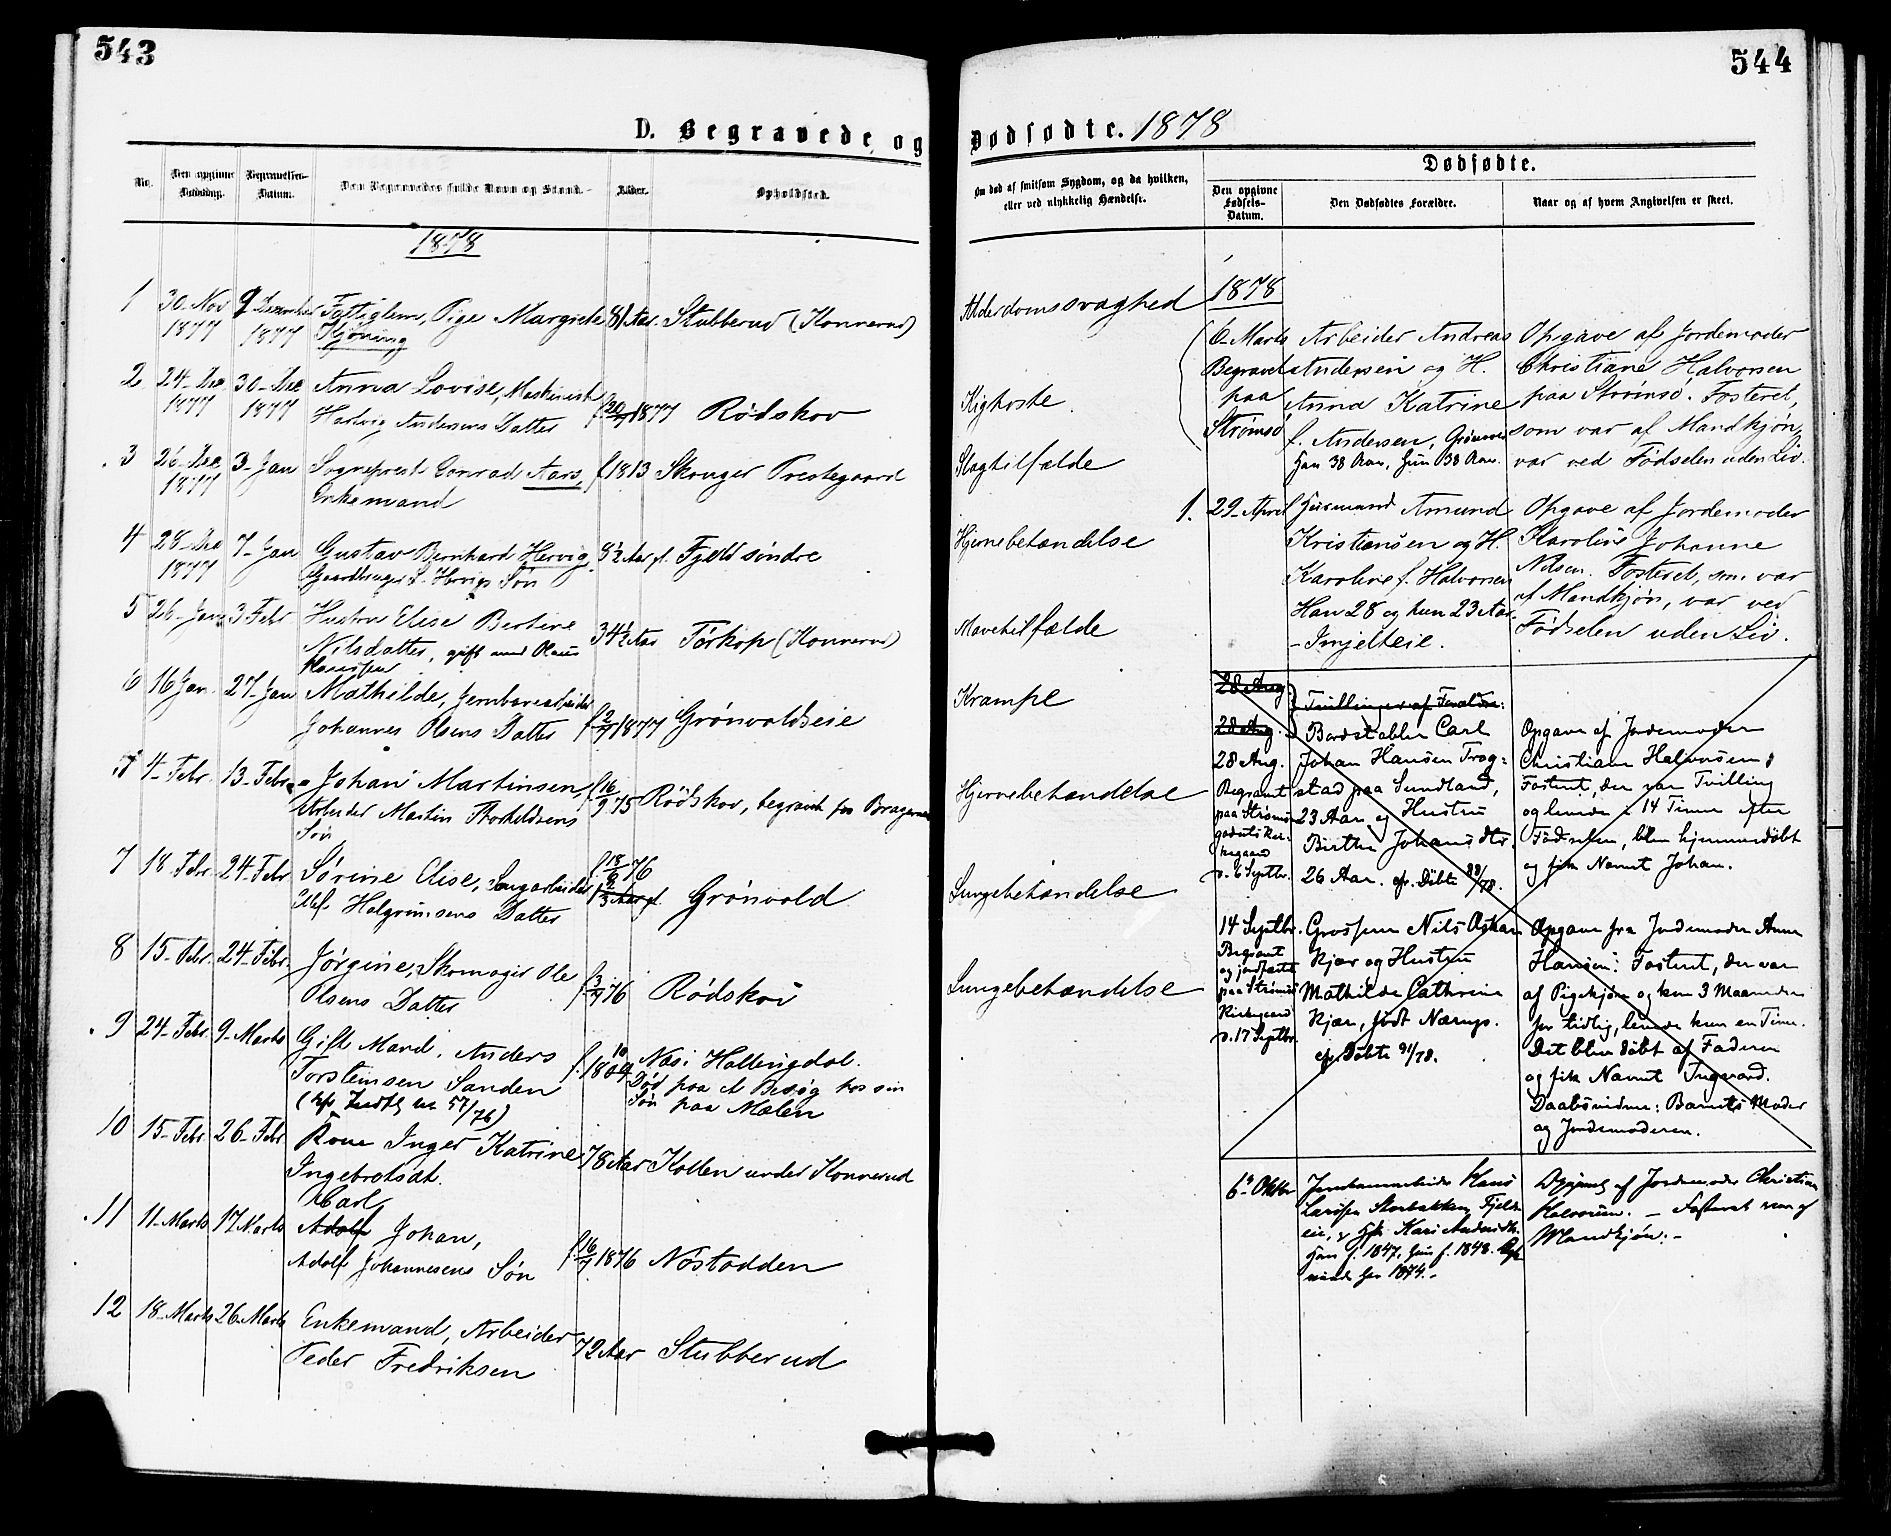 543
D. Begravede og
No.
Den opgivne Dødsdag.
Begravelses-Datum.
Den Begravedes fulde Navn og Stand.
Alder.
Opholdssted.
1878
1 30-Nov 1877 9 December 1877 Fattiglem, Pige Margrete 81 Aar. Stubberud (Konnerud)
2 24-Dec 1877 30-Dec 1877 Anna Lovise, Maskinist
Hartvig Andersens Datter 1877 Rødskov
3 26-Dec 1877 3-Jan Sogneprest Conrad Aars, f 1813 Skouger Prestegaard
Enkemand
4 28-Dec 1877 7-Jan Gustav Bernhard Hervig 8½ Aar gl. Fjeld søndre
Søn
5 26-Jan 3-Febr Hustru Elise Bertine
Nilsdatter, gift med Olaus 34½ Aar Tørkop (Konnerud)
6 16 Jan. 27-Jan Mathilde, Jernbanearbeider
Johannes Olsens Datter f 2/7 1877 Grønvoldseie
4-Febr. 13-Febr. Johan Martinsen
Arbeider Martin Thorkildsens f 16/9 75 Rødskov, begravet paa Bragernes
Søn
7 18-Febr 24-Febr Sørine Elise, Saugarbeider
Halgrimsens Datter Grønvold
8 15-Febr. 24-Febr. Jørgine, Skomager Ole
Olsens Datter 76 Rødskov
9 24-Febr 9-Marts Gift Mand, Anders
Torsteinsen Sanden Næs i Hallingdal.
Død paa et Besøg hos sin
Søn paa Mælen
57/76)
10 15-Febr. 26-Febr Kone Inger Katrine 78 Aar Kollen under Konnerud
Ingebretsdt.
Karl
11 11-Marts 17 Marts Adolf Johan,
Adolf Johannesens Søn f. 16/7 1876 Nøstodden
12 18-Marts 26-Marts Enkemand, Arbeider
Peder Fredriksen 72 Aar Stubberud
544
Dødfødte. 1878
Om død af smitsom Sygdom, og da hvilken,
eller ved ulykkelig Hændelse.
Dødfødte.
Den opgivne Fødsels-Datum.
Den Dødfødtes Forældre.
Naar og af hvem Angivelsen er skeet.
Alderdomssvaghed
Kighoste.
Slagtilfælde
Hjernebetændelse
Mavetilfælde
Krampe
Hjernebetændelse
Lungebetændelse
Lungebetændelse
1878
6-Marts Arbeider Andreas Opgave af Jordemoder
Begravet Andersen og H. Christiane Halvorsen
paa Anna Katrine paa Strømsø. Fosteret,
Strømsø f. Andersen, som var af Mandkjøn,
Han 38 Aar, Hun 38 Aar. var ved Fødselen uden Liv.
1. 29-April Husmand Amund Opgave af Jordemoder
Kristiansen og H. Karoline Johanne
Karoline f. Halvorsen Nilsen. Fosteret, som var
Han 28 og hun 23 Aar af Mandkjøn, var ved
Fødselen uden Liv.
28 Aug Tvillinger af Forældre:
28 Aug. Bordstabler Carl Opgave af Jordemoder
28 Aug. Johan Hansen Trøg= Christiane Halvorsen;
Begravet stad paa Sundland, Fosteret, der var Tvilling
paa Strømsø 23 Aar og Hustru og levede i 14 Timer efter
Birthe Johansdtr. Fødselen, blev hjemmedøbt
p. 6 Septbr. 26 Aar. og fik Navnet Johan.
14 Septbr. Grosserer Nils Oskar Opgave fra Jordemoder Anne
Begravet Kjær og Hustru Hansen: Fosteret, der var
og jordfæstet Mathilde Cathrine af Pigekjøn og kun 3 Maaneder
paa Strømsø Kjær, født Nærup. for tidlig, levede kun en Time.
Kirkegaard cfr. Døbte 91/78. Det blev døbt af Faderen
p. 17 Septbr. og fik Navnet Ingvard.
Daabsvidner: Barnets Moder
og Jordemoderen.
6te Oktbr Hans af Jordemoder Christiane
Halvorsen. - Fosteret var af
Han f. 1847, Hun f. 1848. Mandkjøn:-
1874.-